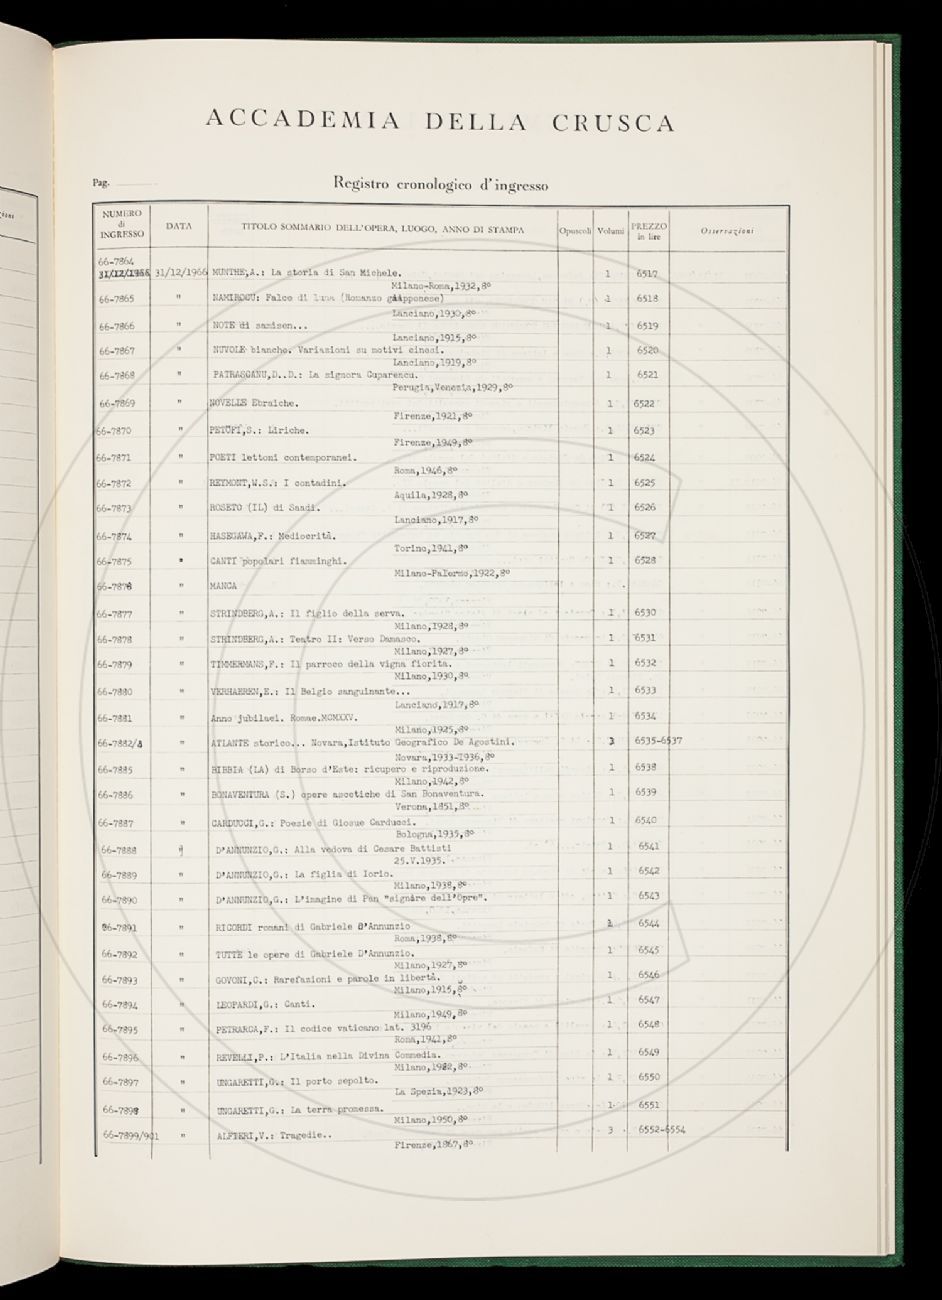 ACCADEMIA DELLA CRUSCA
Pag.
Registro cronologico d'ingresso
NUMERO di INGRESSO DATA TITOLO SOMMARIO DELL'OPERA, LUOGO, ANNO DI STAMPA Opuscoli Volumi PREZZO in lire Osservazioni
66-7864
31/12/1966 31/12/1966 MUNTHE,A.: La storia di San Michele. 1 6517
Milano-Roma,1932,8º
66-7865 " NAMIROCU: Falco di luna (Romanzo giapponese) 1 6518
Lanciano,1930,8º
66-7866 " NOTE di samisen... 1 6519
Lanciano,1915,8º
66-7867 " NUVOLE bianche. Variazioni su motivi cinesi. 1 6520
Lanciano,1919,8º
66-7868 " PATRASCANU,D..D.: La signora Cuparencu. 1 6521
Perugia,Venezia,1929,8º
66-7869 " NOVELLE Ebraiche. 1 6522
Firenze,1921,8º
66-7870 " PETÖFI,S.: Liriche. 1 6523
Firenze,1949,8º
66-7871 " POETI lettoni contemporanei. 1 6524
Roma,1946,8º
66-7872 " REYMONT,W.S.: I contadini. 1 6525
Aquila,1928,8º
66-7873 " ROSETO (IL) di Saadi. 1 6526
Lanciano,1917,8º
66-7874 " HASEGAWA,F.: Mediocrità. 1 6527
Torino,1941,8º
66-7875 " CANTI popolari fiamminghi. 1 6528
Milano-Palermo,1922,8º
66-7876 " MANCA
66-7877 " STRINDBERG,A.: Il figlio della serva. 1 6530
Milano,1928,8º
66-7878 " STRINDBERG,A.: Teatro II: Verso Damasco. 1 6531
Milano,1927,8º
66-7879 " TIMMERMANS,F.: Il parroco della vigna fiorita. 1 6532
Milano,1930,8º
66-7880 " VERHAEREN,E.: Il Belgio sanguinante... 1 6533
Lanciano,1917,8º
66-7881 " Anno jubilaei. Romae.MCMXXV. 1 6534
Milano,1925,8º
66-7882/4 " ATLANTE storico... Novara,Istituto Geografico De Agostini. 3 6535-6537
Novara,1933-1936,8º
66-7885 " BIBBIA (LA) di Borso d'Este: ricupero e riproduzione. 1 6538
Milano,1942,8º
66-7886 " BONAVENTURA (S.) opere ascetiche di San Bonaventura. 1 6539
Verona,1851,8º
66-7887 " CARDUCCI,G.: Poesie di Giosue Carducci. 1 6540
Bologna,1935,8º
66-7888 " D'ANNUNZIO,G.: Alla vedova di Cesare Battisti 1 6541
25.V.1935.
66-7889 " D'ANNUNZIO,G.: La figlia di Iorio. 1 6542
Milano,1938,8º
66-7890 " D'ANNUNZIO,G.: L'imagine di Pan "signàre dell'Opre". 1 6543
66-7891 " RICORDI romani di Gabriele D'Annunzio 1 6544
Roma,1938,8º
66-7892 " TUTTE le opere di Gabriele D'Annunzio. 1 6545
Milano,1927,8º
66-7893 " GOVONI,C.: Rarefazioni e parole in libertà. 1 6546
Milano,1915,8º
66-7894 " LEOPARDI,G.: Canti. 1 6547
Milano,1949,8º
66-7895 " PETRARCA,F.: Il codice vaticano lat. 3196 1 6548
Roma,1941,8º
66-7896 " REVELLI,P.: L'Italia nella Divina Commedia. 1 6549
Milano,1922,8º
66-7897 " UNGARETTI,G.: Il porto sepolto. 1 6550
La Spezia,1923,8º
66-7898 " UNGARETTI,G.: La terra promessa. 1 6551
Milano,1950,8º
66-7899/901 " ALFIERI,V.: Tragedie.. 3 6552-6554
Firenze,1867,8º